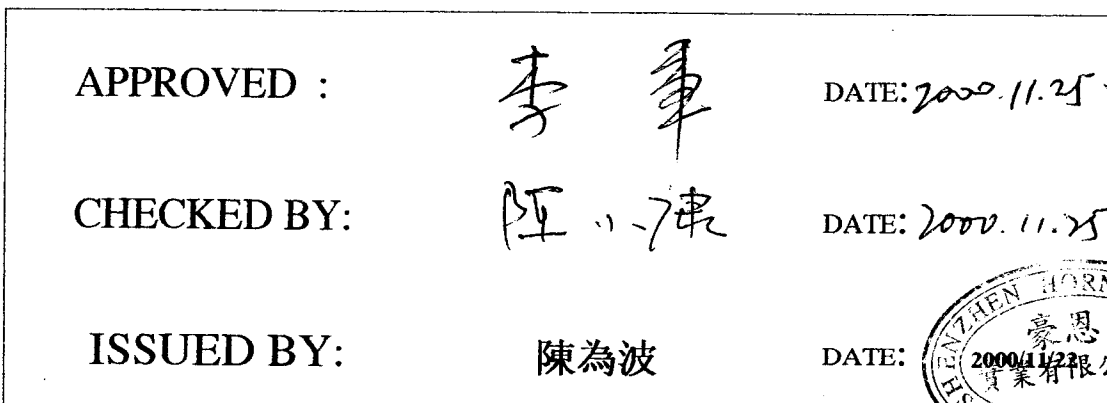 APPROVED : 李 DATE: 2000.11.25
CHECKED BY: 小 DATE: 2000.11.25
ISSUED BY: 陳為波 DATE: 2000/11/22
SHENZHEN HORN
豪恩
實業有限公